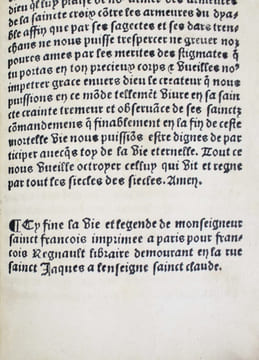 de la saincte croix cõtre les armeures du dya-
ble affin que par ses sagectes et ses dars tren-
chans ne nous puisse trespercer ne grever noz
povres ames par les merites des stigmates q̃
tu portas en ton precieux corps & vueilles no9
impetrer grace envers dieu le createur q̃ nous
puissions en ce mõde tellemẽt vivre en sa sain
cte crainte tremeur et observãce de ses sainctz
cõmandemens q̃ finablement en la fin de ceste
mortelle vie nous puissiõs estre dignes de par
ticiper avecqs toy de la vie eternelle. Tout ce
nous vueille octroyer celluy qui vit et regne
par tout les siecles des siecles. Amen.
¶ Cy fine la vie et legende de monseigneur
sainct francois imprimee a paris pour fran-
cois Regnault libraire demourant en la rue
sainct Jaques a lenseigne sainct claude.